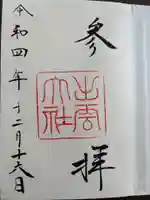 参拝
出雲大社
令和四年十二月十六日